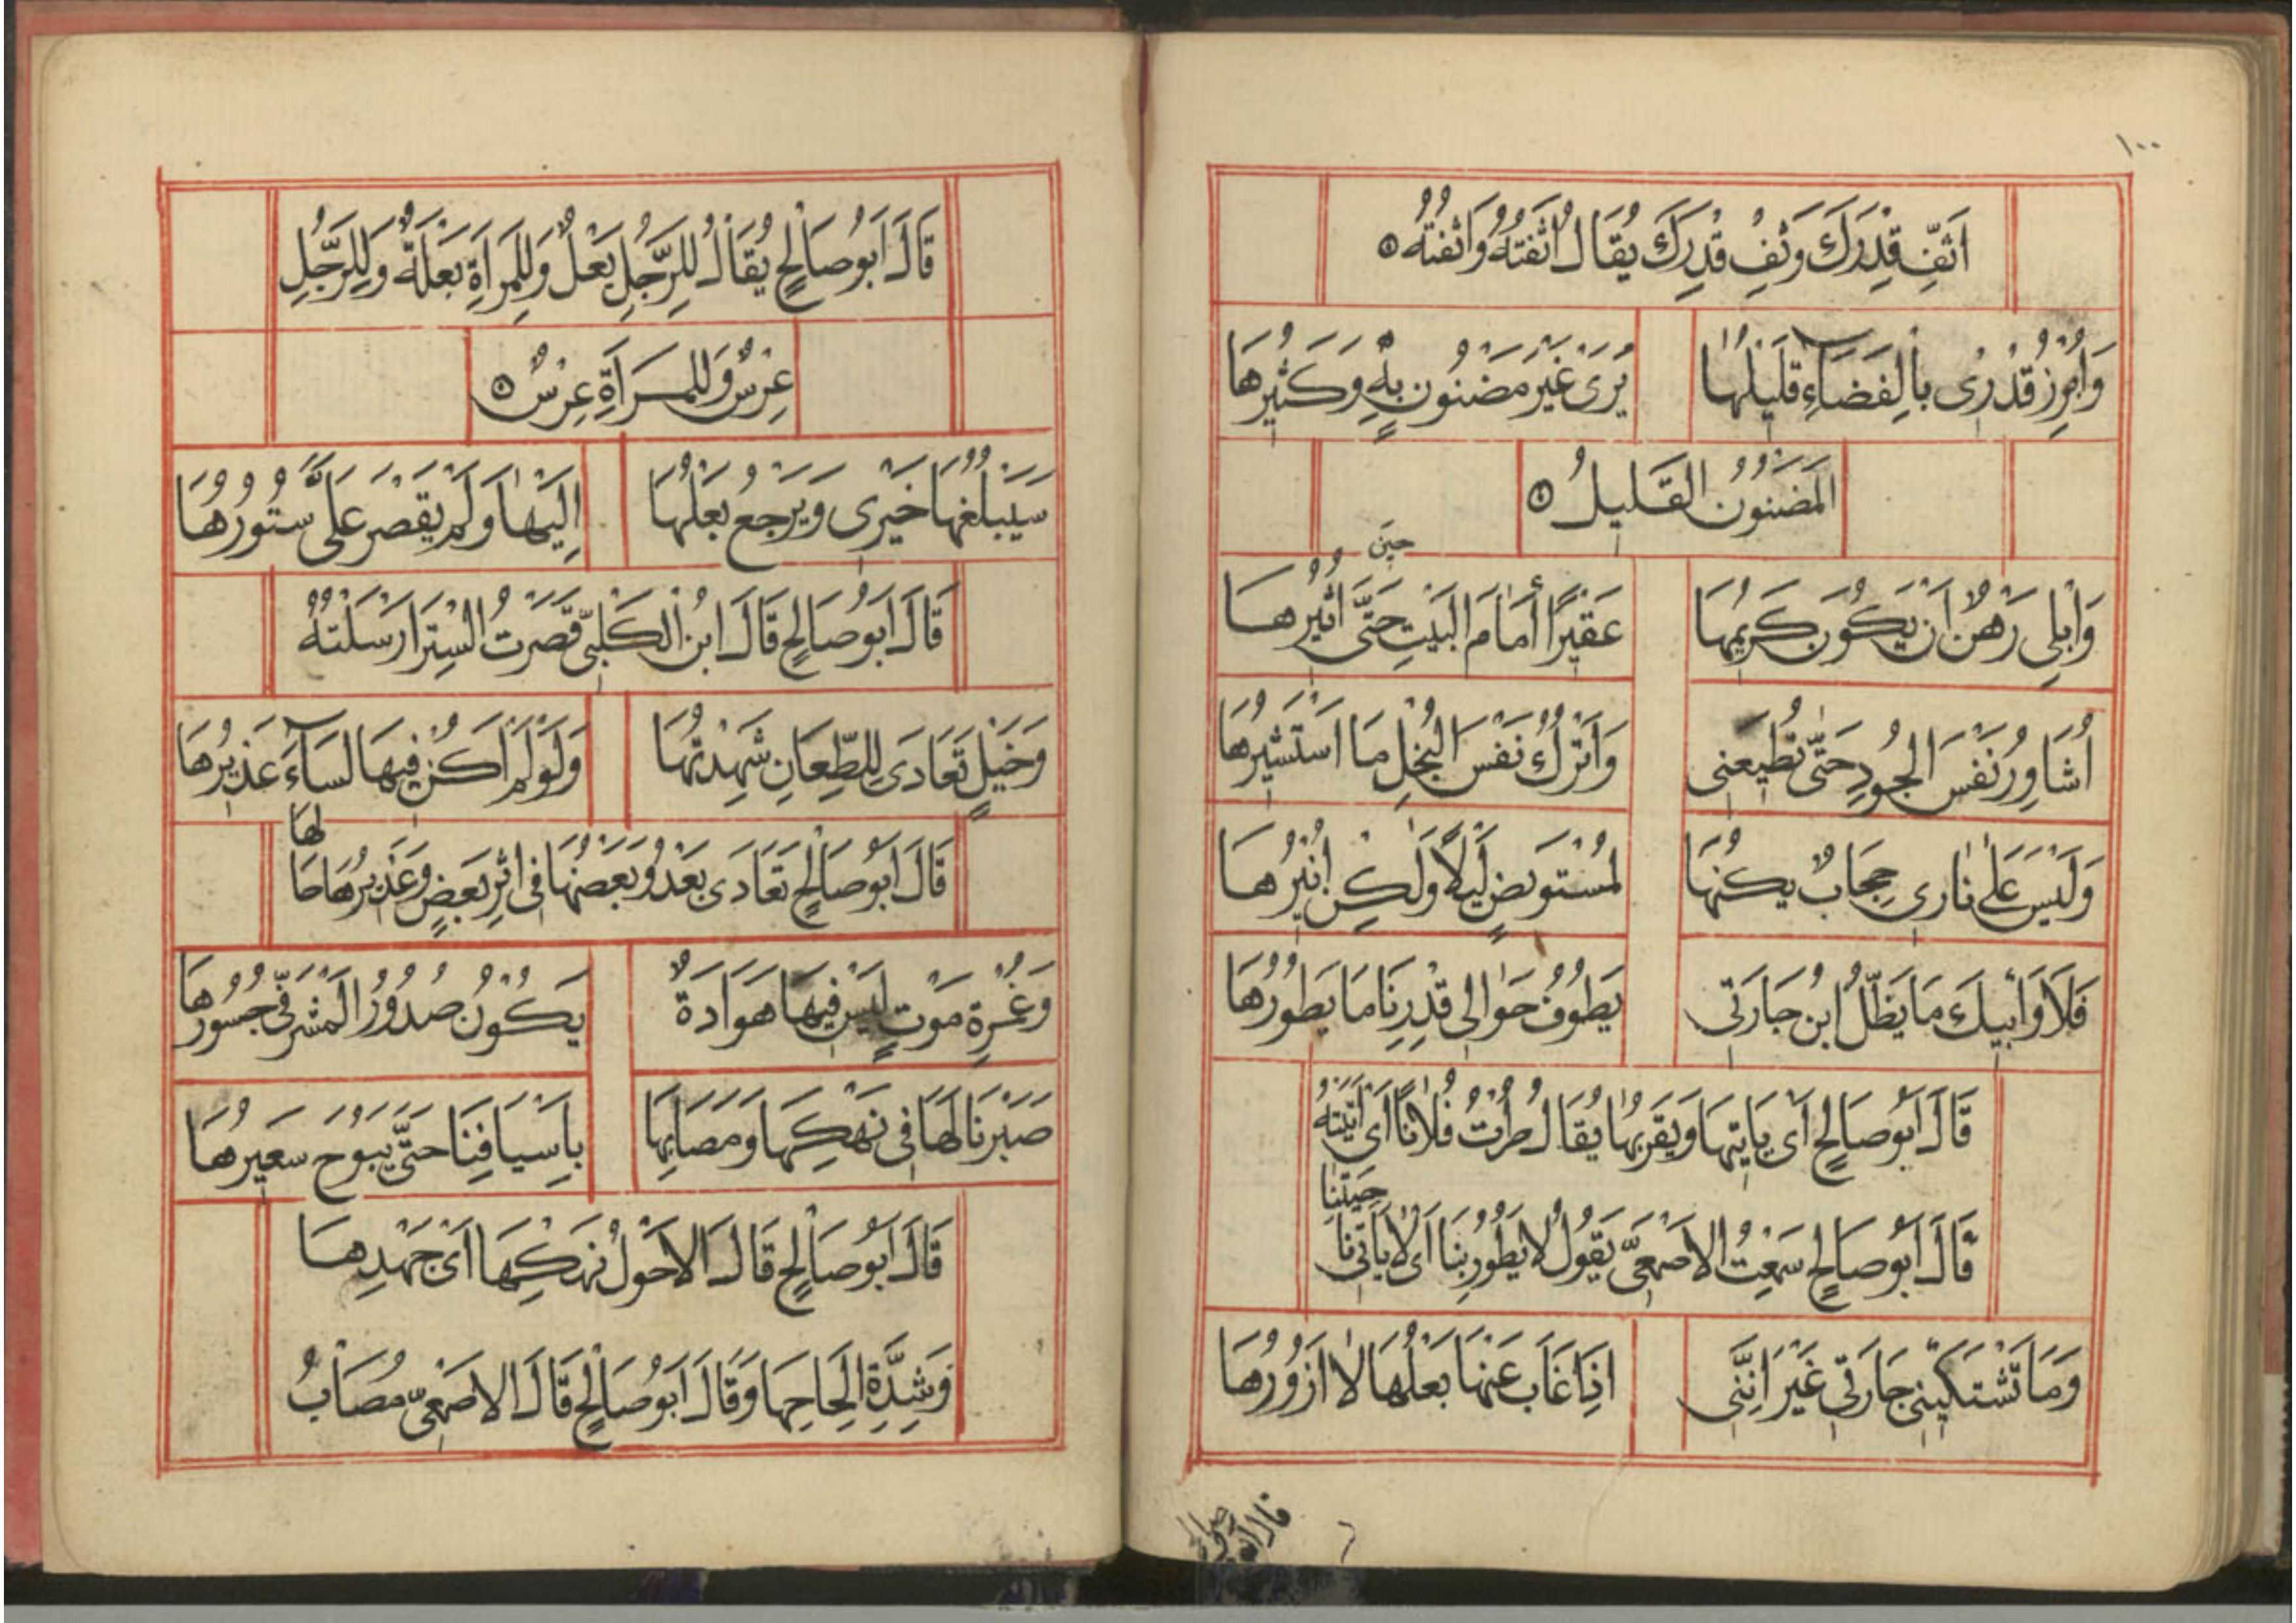 ١٠٠
اَثِّفْ قِدْرَكَ وَثَفِّ قِدْرَكَ يُقَالُ اَثَّفْتُهُ وَاَثْفَتُهُ
وَاُبْرِزُ قِدْرِى بِالفَضَآءِ قَلِيلُهَا يُرَى غَيْرَ مَضْنُونٍ بِهِ وَكَثِيرُهَا
المَضْنُونُ القَلِيلُ
حِينَ
وَاِبْلِى رَهْنٌ اَنْ يَكُونَ كَرِيمُهَا عَقِيرًا أَمَامَ البَيْتِ حَتَّى اُثِيرُهَا
اُشَاوِرُ نَفْسَ الجُودِ حَتَّى تُطِيعَنِى وَاَتْرُكُ نَفْسَ البُخْلِ مَا اَسْتَشِيرُهَا
وَلَيْسَ عَلَى نَارِى حِجَابٌ يَكُنُّهَا لِمُسْتَوبِضٍ لَيْلًا وَلَكِنْ اُنِيرُهَا
فَلَا وَأَبِيكَ مَا يَظَلُّ ابنُ جَارَتِى يَطُوفُ حَوَالى قِدْرِنَا مَا يَطُورُهَا
قَالَ اَبُو صَالِحٍ اَى يَاتِيهَا وَيَقْرَبُهَا يُقَالُ طُرْتُ فُلَانًا اَى اَتَيْتُهُ
جِيتَنَا
قَالَ اَبُو صَالِحٍ سَمِعْتُ الاَصْمَعِىَّ يَقُولُ لَا يَطُورُ بِنَا اَى لَا يَاتِينَا
وَمَا تَشْتَكِينِى جَارَتِى غَيْرَ اَنَّنِى اِذَا غَابَ عَنْهَا بَعْلُهَا لَا اَزُورُهَا
قال ابو صالح
قَالَ اَبُو صَالِحٍ يُقَالُ لِلرَّجُلِ بَعْلٌ وَلِلمَرْاَةِ بَعْلَةٌ وَلِلرَّجُلِ
عِرْسٌ وَلِلمَرْاَةِ عِرْسٌ
سَيَبْلُغُهَا خَيْرِى وَيَرْجِعُ بَعْلُهَا اِلَيْهَا وَلَمْ يُقْصَرْ عَلَىَّ سُتُورُهَا
قَالَ اَبُو صَالِحٍ قَالَ ابنُ الكَلْبِىِّ قَصَرْتُ السِّتْرَ اَرْسَلْتُهُ
وَخَيْلٍ تَعَادَى لِلطِّعَانِ شَهِدْتُهَا وَلَوْ لَمْ اَكُنْ فِيهَا لَسَآءَ عَذِيرُهَا
لها
قَالَ اَبُو صَالِحٍ تَعَادَى بَعْدُو بَعْضُهَا فِى اِثْرِ بَعْضٍ وَعَذِيرُهَا حَا
وَغُمْرَةِ مَوْتٍ لَيْسَ فِيهَا هَوَادَةٌ يَكُونُ صُدُورُ المَشْرَفِىِّ جُسُورُهَا
صَبَرْنَا لَهَا فِى نَهْكِهَا وَمَصَابِهَا بِاَسْيَافِنَا حَتَّى يَبُوحَ سَعِيرُهَا
قَالَ اَبُو صَالِحٍ قَالَ الاَحْوَلُ نَهْكِهَا اَىْ جَهْدِهَا
وَشِدَّةِ اِلْحَاحِهَا وَقَالَ اَبُو صَالِحٍ قَالَ الاَصْمَعِىُّ مُصَابُ